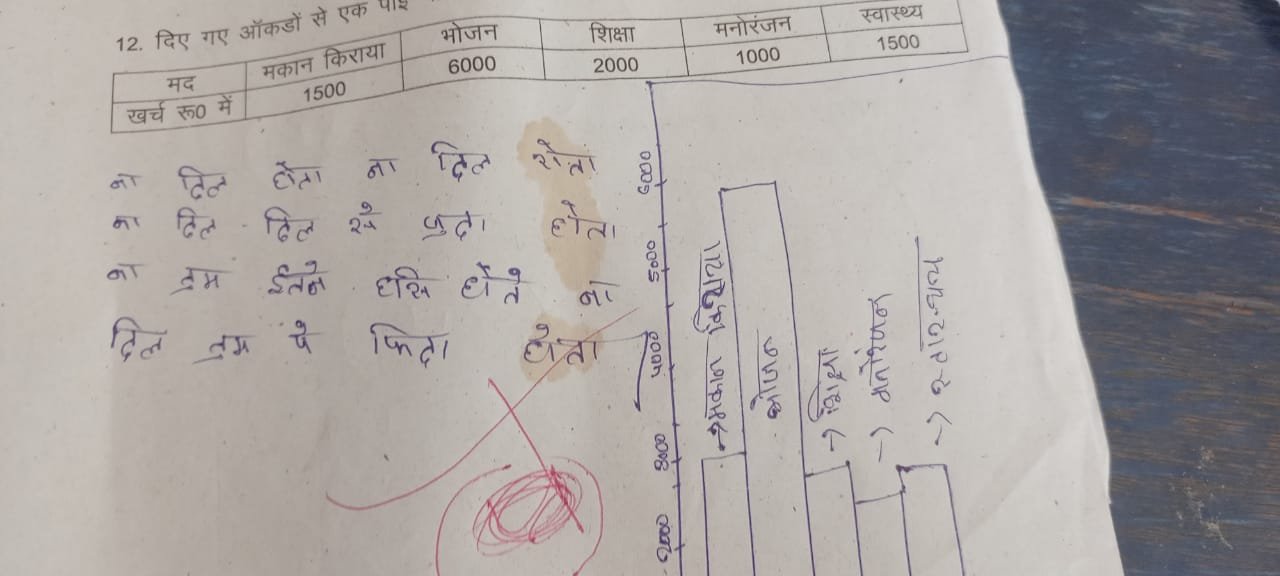 12. दिए गए ऑकडों से एक पाई
मद मकान किराया भोजन शिक्षा मनोरंजन स्वास्थ्य
खर्च रू0 में 1500 6000 2000 1000 1500
ना दिल होता ना दिल रोता
ना दिल दिल से जुदा होता
ना तुम इतने हसि होते ना
दिल तुम पे फिदा होता
6000
5000
4000
3000
2000
→ मकान किराया
भोजन
→ शिक्षा
→ मनोरंजन